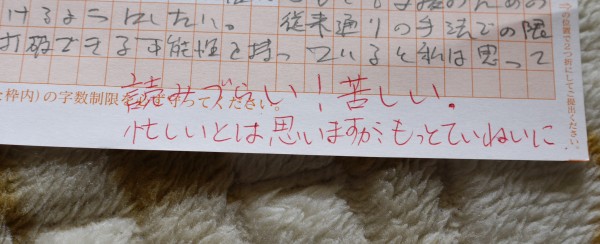 けるようにしたい。従来通りの手法での限
打破できる可能性を持っていると私は思って
枠内)の字数制限を必ず守ってください。
読みづらい!苦しい。
忙しいとは思いますが、もっとていねいに
の位置で2つ折にしてご提出ください。